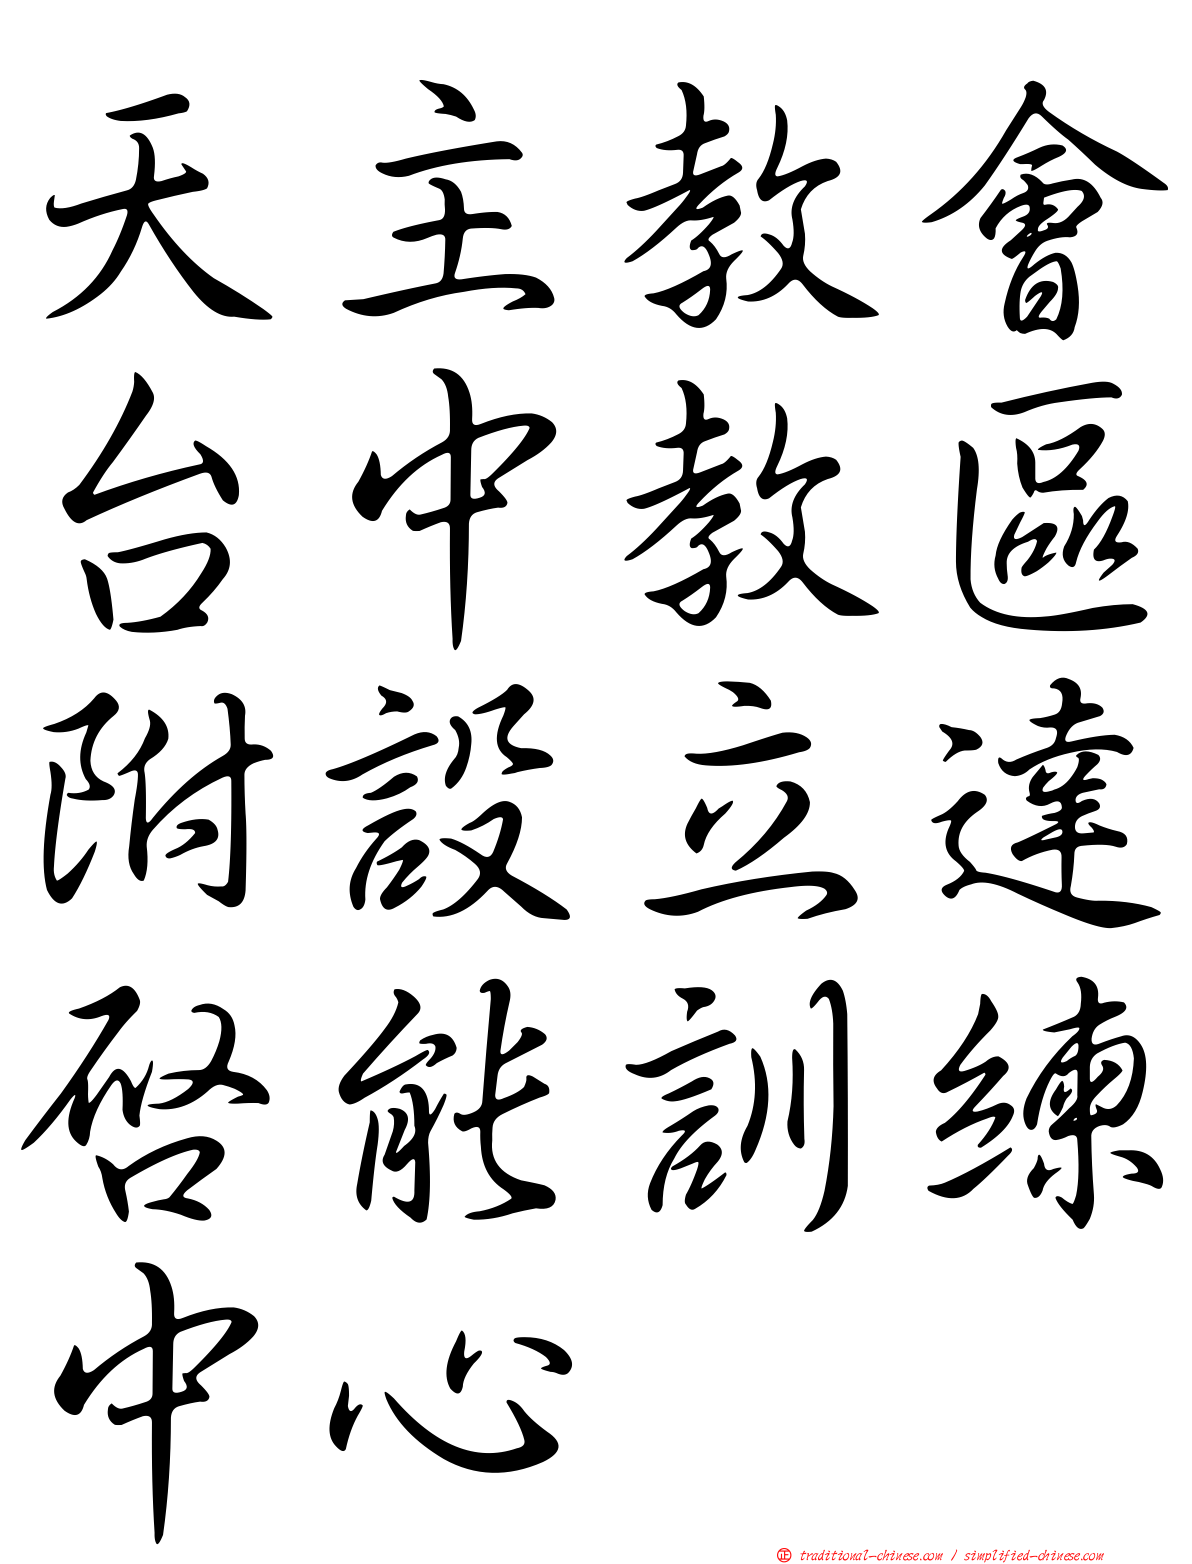 天主教會
台中教區
附設立達
啓能訓練
中心
正 traditional-chinese.com / simplified-chinese.com